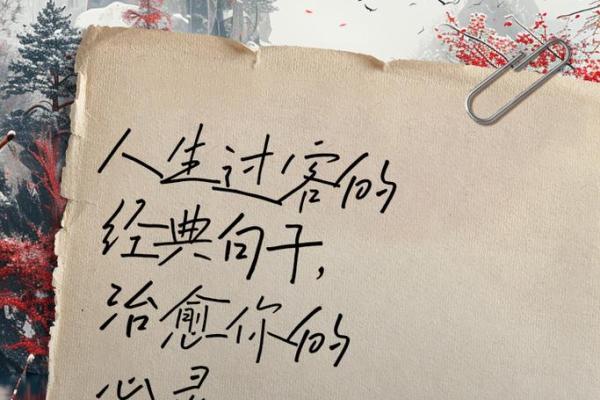 人生过客的
经典句子，
治愈你的
心灵